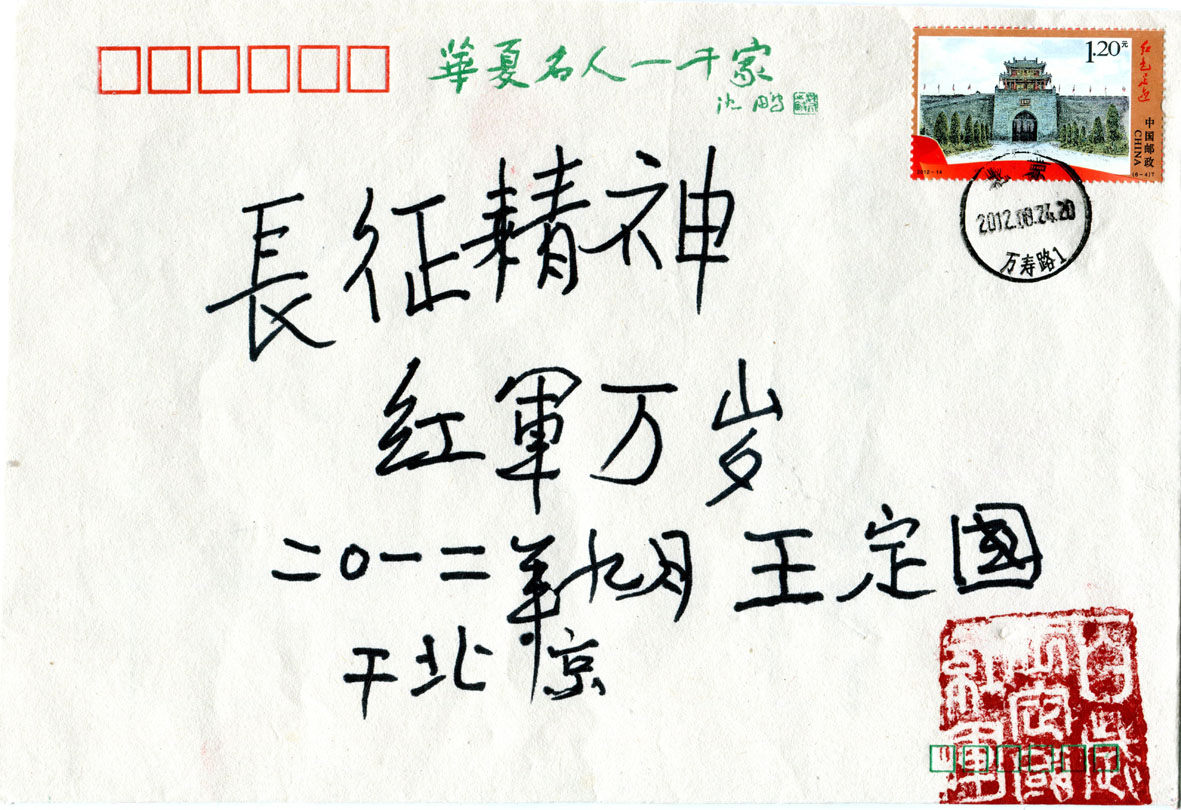 華夏名人一千家
沈鹏
1.20元
红色足迹
中国邮政
CHINA
2012-14
(6-4)T
北京
2012.09.24.20
万寿路1
長征精神
红軍万岁
二〇一二年九月 王定國
于北京
百岁
红軍